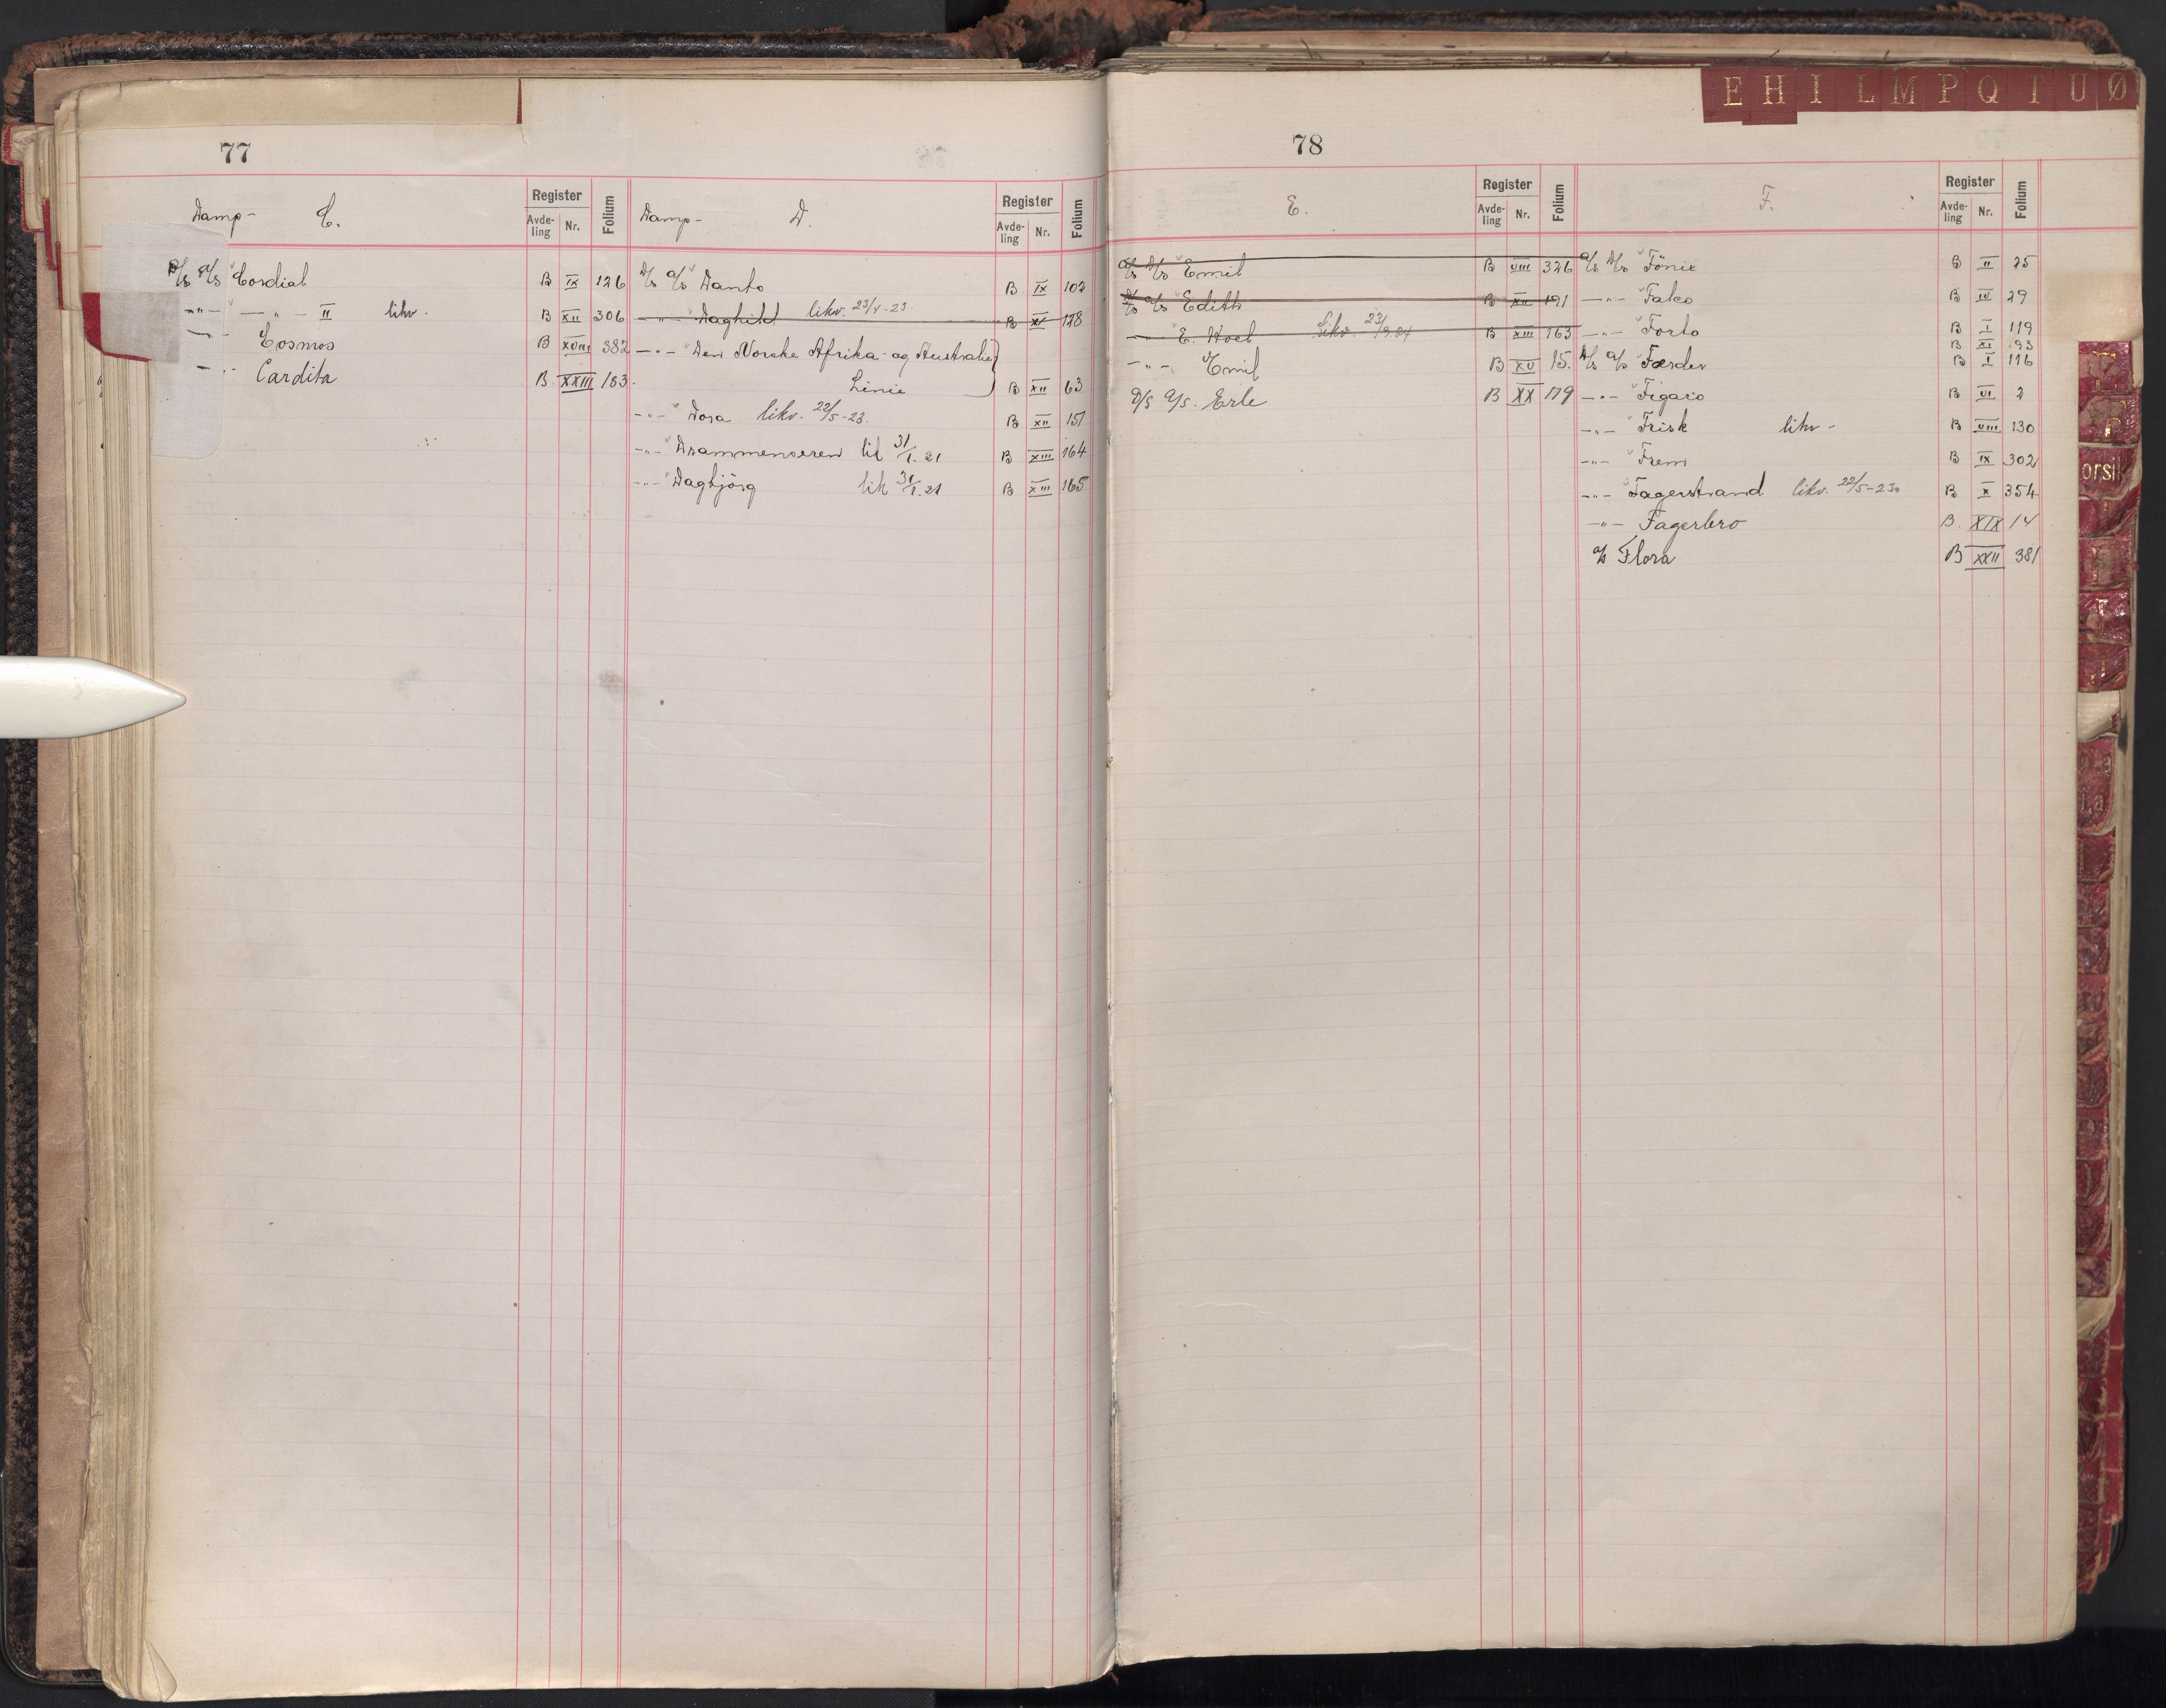 77
Damp- C.
Register
Avde-ling Nr. Folium
D/s A/S "Cordial B IX 126
—"— — " — II likv. B XII 306
—"— Cosmos B XVIII 382
—"— Cardita B. XXIII 183.
Damp- D.
Register
Avde-ling Nr. Folium
D/s A/s "Danto B IX 102
—"— "Daghild likv. 23/V-23. B XI 178
—"— "Den Norske Afrika- og Australie
Linie B XII 63
—"— "Dora likv. 22/5-23. B XII 151
—"— "Drammenseren lik 31/1.21 B XIII 164
—"— "Dagbjörg lik 31/1.21 B XIII 165
E H I L M P Q T U Ø
78
E.
Register
Avde-ling Nr. Folium
A/s D/s "Emil B VIII 326
D/s A/s "Edith B XII 191
—"— E. Hoel Likv. B XIII 163
—"— "Emil B XV 15.
D/S A/S. Erle B XX 179
F.
Register
Avde-ling Nr. Folium
A/s D/s "Fönix B II 25
—"— "Fako B IV 29
—"— "Forto B I 119
B XI 193
D/s A/s "Færder B I 116
—"— "Figaro B VI 2
—"— "Frisk likv- B VIII 130
—"— "Frem B IX 302
—"— "Fagerstrand likv. 22/5-23. B X 354
—"— Fagerbro B. XIX 14
A/s Flora B XXII 381